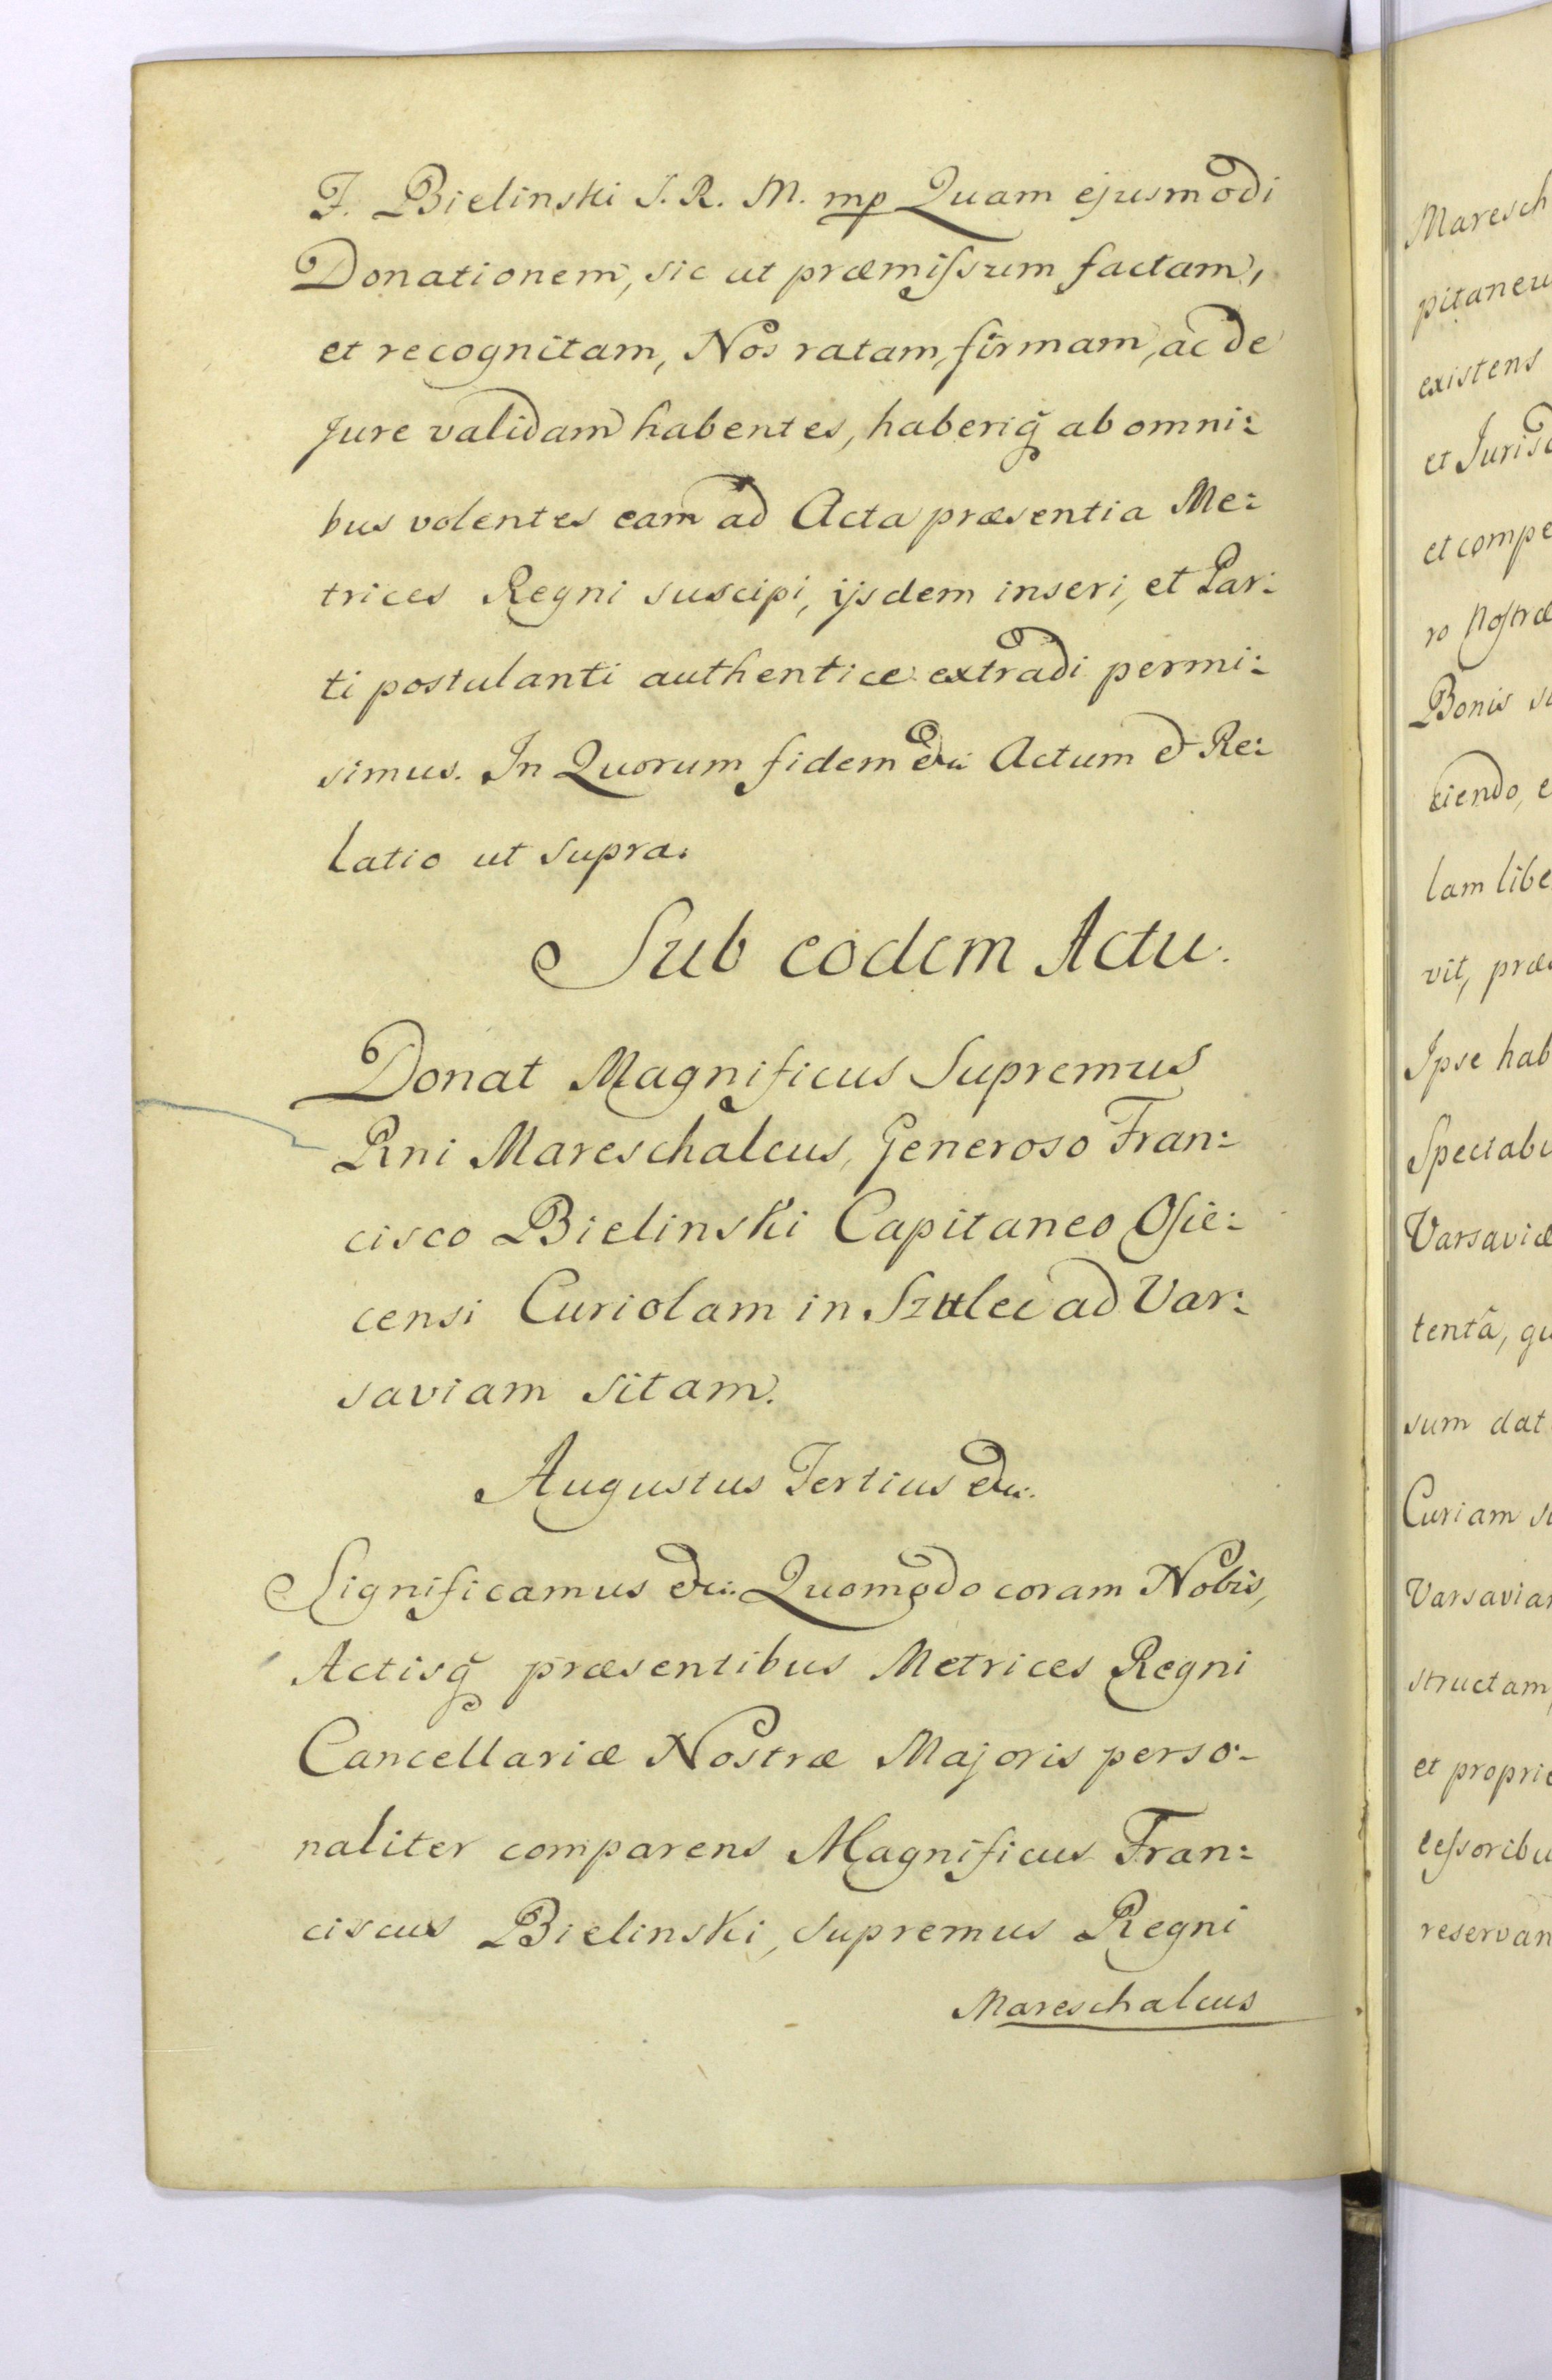 F. Bielinski S. R. M. mp Quam ejusmodi
Donationem, sic ut præmiſsum factam,
et recognitam, Nos ratam, firmam, ac de
Jure validam habentes, haberiq̃ ab omni:
bus volentes eam ad Acta præsentia Me:
trices Regni suscipi, ijsdem inseri, et Par:
ti postulanti authentice extradi permi:
simus. In Quorum fidem &c: Actum & Re:
latio ut supra.
Sub eodem Actu.
Donat Magnificus Supremus
Rni Mareschalcus, Generoso Fran:
cisco Bielinski Capitaneo Osie:
censi Curiolam in Szulec ad Var:
saviam sitam.
Augustus Tertius &c:
Significamus &c: Quomodo coram Nobis,
Actisq̃ præsentibus Metrices Regni
Cancellariæ Nostræ Majoris perso:
naliter comparens Magnificus Fran:
ciscus Bielinski, Supremus Regni
Mareschalcus
Maresch
pitaneu
existens
et Jurisd
et compe
ro Noſtræ
Bonis
ciendo, e
lam libe
vit, præ
Ipse hab
Spectabi
Varsaviæ
tentâ, qu
sum dat
Curiam
Varsavia
structam,
et proprie
ceſsoribu
reservan